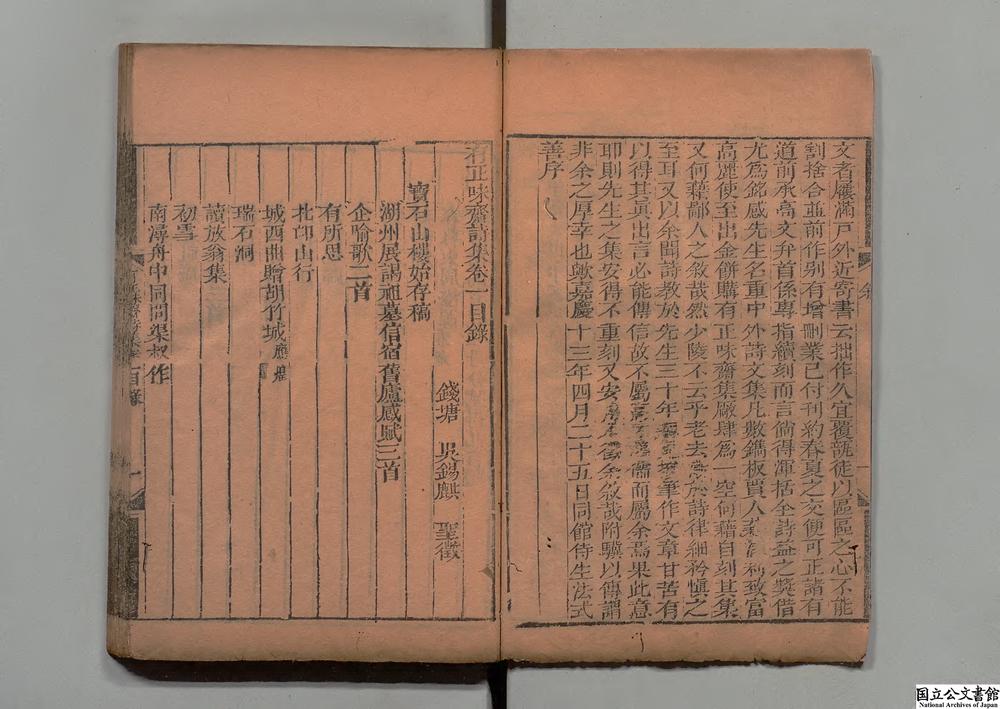 文者屨滿戶外近寄書云拙作久宜覆瓿徒以區區之心不能
割捨合並前作别有增刪業已付刊約春夏之交便可正諸有
道前承高文弁首係專指續刻而言倘得渾括全詩益之獎借
尤爲銘感先生名重中外詩文集凡數鐫板賈人致富
高麗使至出金餅購有正味齋集厰肆爲一空何藉自刻其集
又何藉鄙人之敘哉然少陵不云乎老去於詩律細矜愼之
至耳又以余聞詩教於先生三十年筆作文章甘苦有
以得其眞出言必能傳信故不屬儒而屬余焉果此意
耶則先生之集安得不重刻又安余敘哉附驥以傳謂
非余之厚幸也歟嘉慶十三年四月二十五日同館侍生法式
善序
有正味齋詩集卷一目錄
錢塘 吳錫麒 聖徵
寶石山樓始存稿
湖州展謁祖墓信宿舊廬感賦三首
企喻歌二首
有所思
北邙山行
城西曲贈胡竹城
瑞石洞
讀放翁集
初雪
南潯舟中同問渠叔作